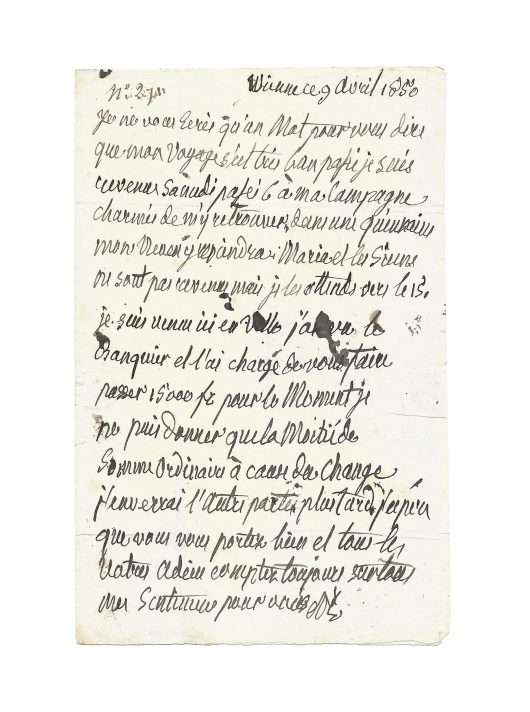 No. 2.
Vienne ce 9 Avril 1850
Je ne vous Ecris qu'un Mot pour vous dire
que mon Voyage s'est très bien passé je suis
revenu Samedi passé 6 à ma Campagne
charmé de m'y retrouver, dans une quinzaine
mon Neveu y viendra; Maria et les Siens
ne sont pas revenus mais je les attends vers le 15.
je suis venu ici en Ville j'ai vu le
Banquier et l'ai chargé de vous faire
passer 15000 fr pour le Moment je
ne puis donner que la Moitié de
Somme Ordinaire à cause du Change
j'enverrai l'Autre partie plus tard, j'espère
que vous vous portez bien et tous les
Vôtres Adieu comptez toujours sur tous
mes Sentimens pour vous